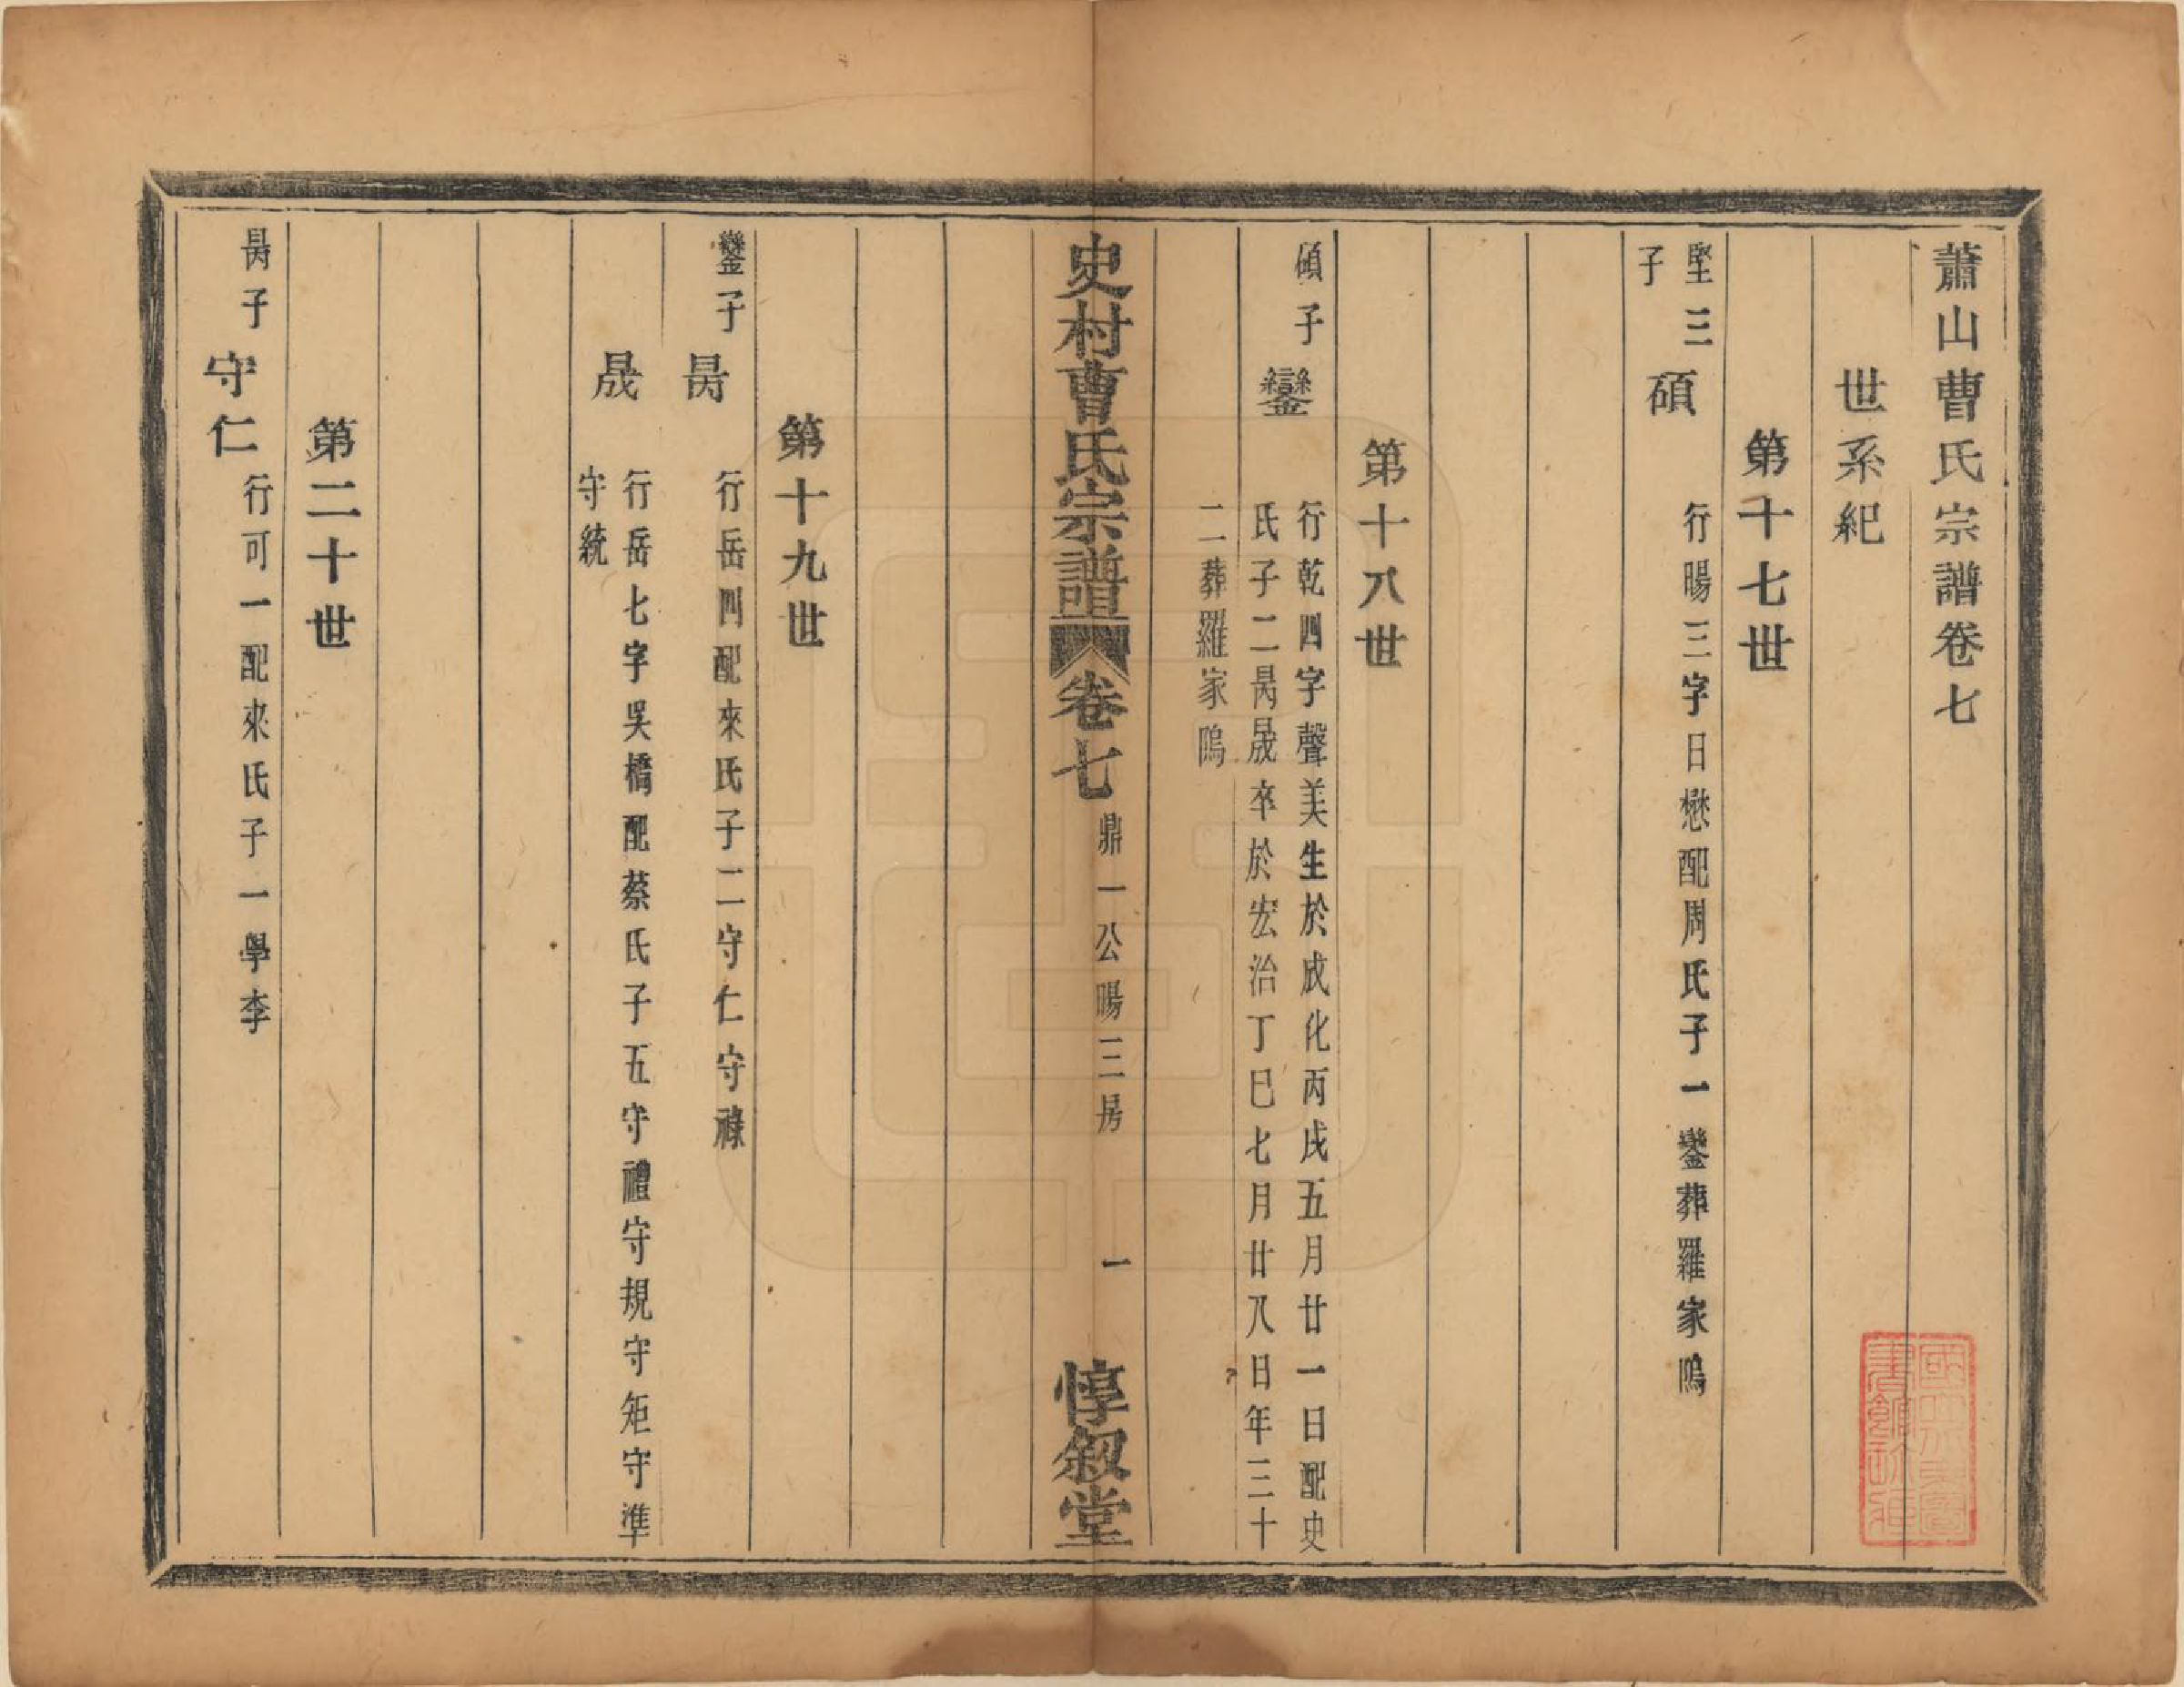 蕭山曹氏宗譜卷七
世系紀
第十七世
堅三
子
碩
行暘三字日懋配周氏子一鑾葬羅家隖
第十八世
碩子
鑾
行乾四字聲美生於成化丙戌五月廿一日配史
氏子二昺晟卒於宏治丁巳七月廿八日年三十
二葬羅家隖
史村曹氏宗譜
卷七
鼎一公暘三房
一
惇叙堂
第十九世
鑾子
昺
行岳四配來氏子二守仁守祿
晟
行岳七字吳橋配蔡氏子五守禮守規守矩守準
守統
第二十世
昺子
守仁
行可一配來氏子一學李